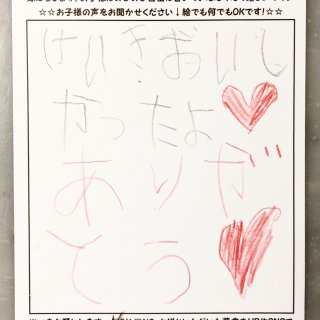 ☆☆お子様の声をお聞かせください↓絵でも何でもOKです!☆☆
けいきおいし
かったよ
ありが
とう